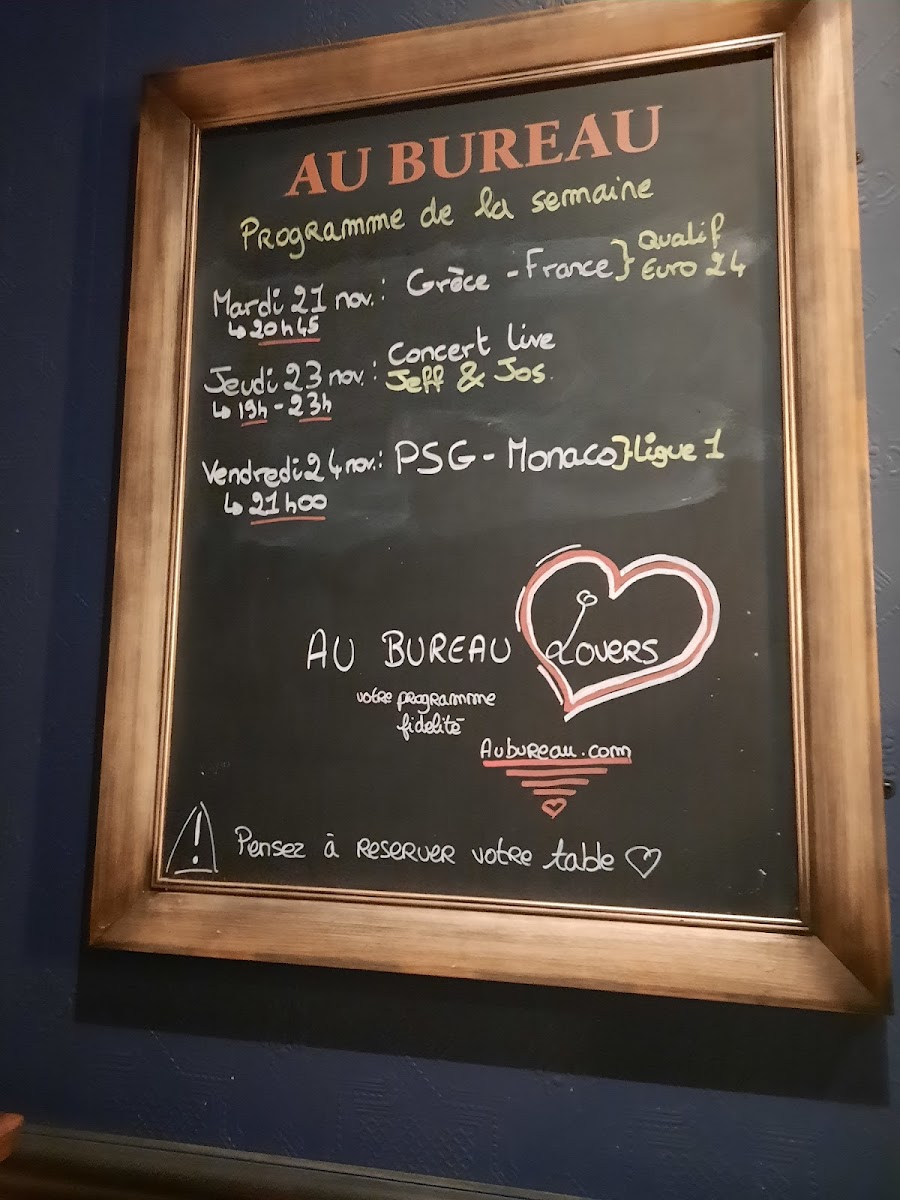 AU BUREAU
Programme de la semaine
Mardi 21 nov. : Grèce - France } Qualif
Euro 24
↳ 20h45
Jeudi 23 nov. : Concert live
Jeff & Jos.
↳ 19h - 23h
Vendredi 24 nov. : PSG - Monaco } Ligue 1
↳ 21h00
AU BUREAU LOVERS
votre programme
fidelité
Aubureau.com
! Pensez à reserver votre table ♡